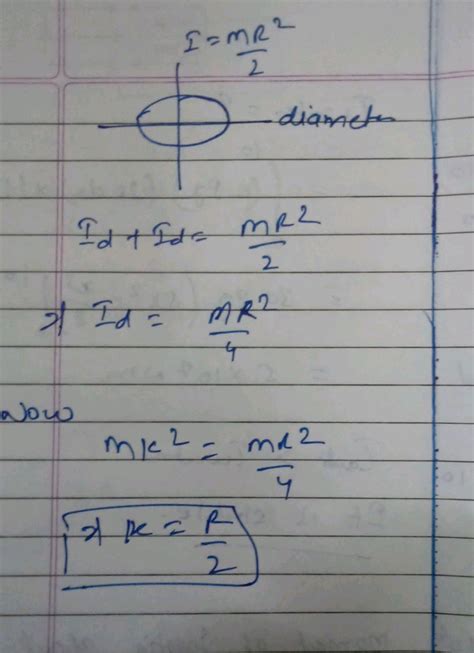 I = MR²/2
diameter
I_d + I_d = MR²/2
⇒ I_d = MR²/4
Now
MK² = MR²/4
⇒ K = R/2